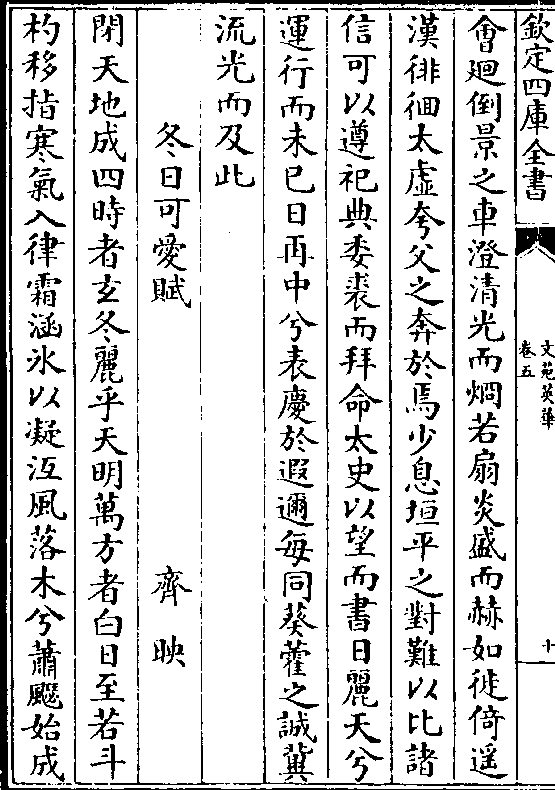 欽定四庫全書
文苑英華
卷五
十
會廻倒景之車澄清光而烱若扇炎盛而赫如徙倚遥
漢徘徊太虚夸父之奔於焉少息垣平之對難以比諸
信可以遵祀典委裘而拜命太史以望而書日麗天兮
運行而未已日再中兮表慶於遐邇每同葵藿之誠冀
流光而及此
冬日可愛賦　齊映
閉天地成四時者玄冬麗乎天明萬方者白日至若斗
杓移指寒氣入律霜涵氷以凝沍風落木兮蕭飋始成